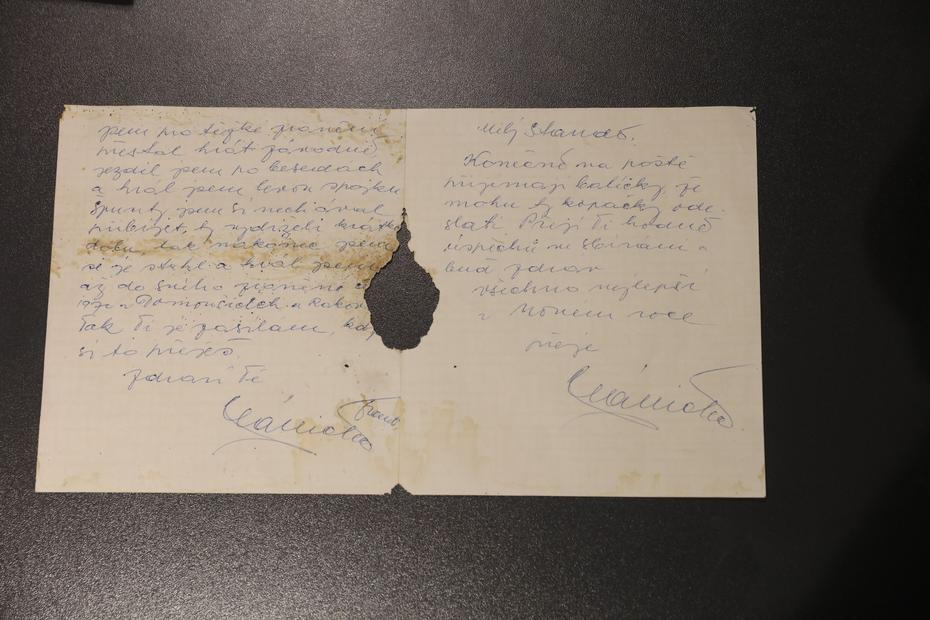 jsem pro těžké zranění
přestal hrát závodně,
jezdil jsem po besedách
a hrál jsem levou spojku
špunty jsem si nechával
přibíjet, by vydrželi krátk
dobu, tak nakonec jsem
si je stáhl a hrál jsem
až do svého zranění
v Domoušicích u Rakov
Tak Ti je zasílám, kdy
si to přeješ.
Zdraví Tě
Plánička Frant.
Milý Standо.
Konečně na poště
přijímají balíčky, že
mohu ty kopačky ode
slati. Přeji Ti hodně
úspěchů ve sbírání a
buď zdráv
Všechno nejlepší
v Novém roce
přeje
Plánička